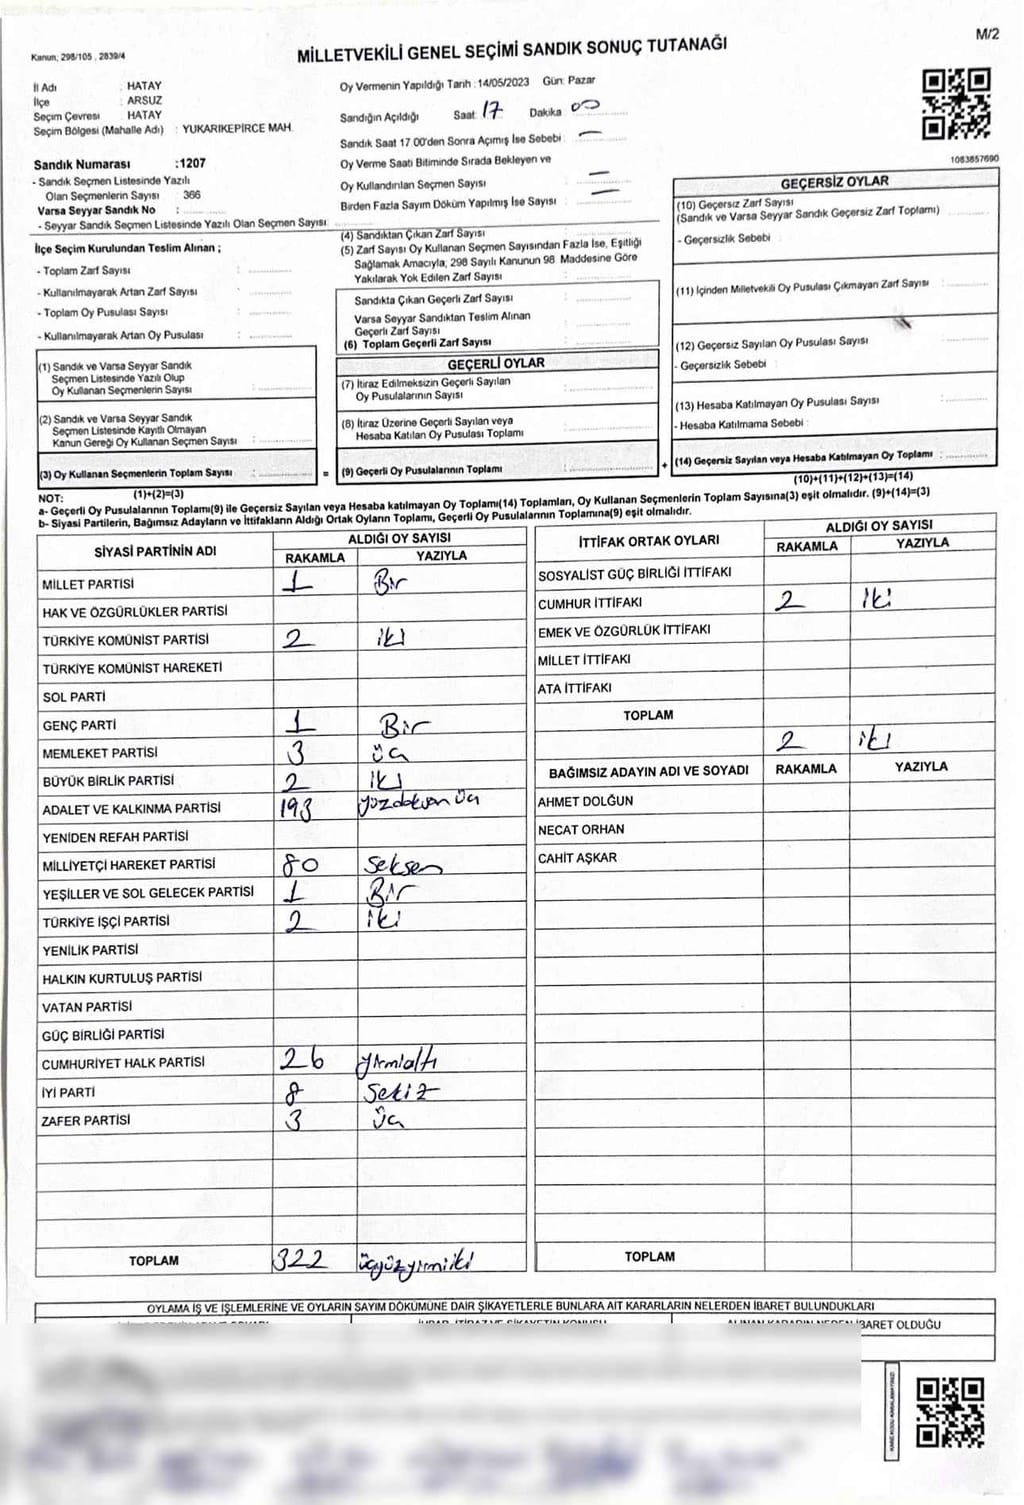 M/2
Kanun; 298/105 , 2839/4
MİLLETVEKİLİ GENEL SEÇİMİ SANDIK SONUÇ TUTANAĞI
İl Adı : HATAY
İlçe : ARSUZ
Seçim Çevresi : HATAY
Seçim Bölgesi (Mahalle Adı) : YUKARIKEPİRCE MAH.
Sandık Numarası :1207
- Sandık Seçmen Listesinde Yazılı
Olan Seçmenlerin Sayısı : 366
Varsa Seyyar Sandık No :
- Seyyar Sandık Seçmen Listesinde Yazılı Olan Seçmen Sayısı
Oy Vermenin Yapıldığı Tarih :14/05/2023 Gün: Pazar
Sandığın Açıldığı Saat: 17 Dakika 00
Sandık Saat 17.00'den Sonra Açımış İse Sebebi : —
Oy Verme Saati Bitiminde Sırada Bekleyen ve
Oy Kullandırılan Seçmen Sayısı : —
Birden Fazla Sayım Döküm Yapılmış İse Sayısı : —
1083857690
İlçe Seçim Kurulundan Teslim Alınan ;
- Toplam Zarf Sayısı :
- Kullanılmayarak Artan Zarf Sayısı :
- Toplam Oy Pusulası Sayısı :
- Kullanılmayarak Artan Oy Pusulası :
(1) Sandık ve Varsa Seyyar Sandık
Seçmen Listesinde Yazılı Olup
Oy Kullanan Seçmenlerin Sayısı :
(2) Sandık ve Varsa Seyyar Sandık
Seçmen Listesinde Kayıtlı Olmayan
Kanun Gereği Oy Kullanan Seçmen Sayısı :
(3) Oy Kullanan Seçmenlerin Toplam Sayısı :
(1)+(2)=(3)
(4) Sandıktan Çıkan Zarf Sayısı :
(5) Zarf Sayısı Oy Kullanan Seçmen Sayısından Fazla İse, Eşitliği
Sağlamak Amacıyla; 298 Sayılı Kanunun 98. Maddesine Göre
Yakılarak Yok Edilen Zarf Sayısı :
Sandıkta Çıkan Geçerli Zarf Sayısı :
Varsa Seyyar Sandıktan Teslim Alınan
Geçerli Zarf Sayısı :
(6) Toplam Geçerli Zarf Sayısı :
GEÇERLİ OYLAR
(7) İtiraz Edilmeksizin Geçerli Sayılan
Oy Pusulalarının Sayısı :
(8) İtiraz Üzerine Geçerli Sayılan veya
Hesaba Katılan Oy Pusulası Toplamı :
= (9) Geçerli Oy Pusulalarının Toplamı :
GEÇERSİZ OYLAR
(10) Geçersiz Zarf Sayısı
(Sandık ve Varsa Seyyar Sandık Geçersiz Zarf Toplamı) :
- Geçersizlik Sebebi :
(11) İçinden Milletvekili Oy Pusulası Çıkmayan Zarf Sayısı :
(12) Geçersiz Sayılan Oy Pusulası Sayısı :
- Geçersizlik Sebebi :
(13) Hesaba Katılmayan Oy Pusulası Sayısı :
- Hesaba Katılmama Sebebi :
+ (14) Geçersiz Sayılan veya Hesaba Katılmayan Oy Toplamı :
(10)+(11)+(12)+(13)=(14)
NOT:
a- Geçerli Oy Pusulalarının Toplamı(9) ile Geçersiz Sayılan veya Hesaba katılmayan Oy Toplamı(14) Toplamları, Oy Kullanan Seçmenlerin Toplam Sayısına(3) eşit olmalıdır. (9)+(14)=(3)
b- Siyasi Partilerin, Bağımsız Adayların ve İttifakların Aldığı Ortak Oyların Toplamı, Geçerli Oy Pusulalarının Toplamına(9) eşit olmalıdır.
SİYASİ PARTİNİN ADI ALDIĞI OY SAYISI
RAKAMLA YAZIYLA
MİLLET PARTİSİ 1 Bir
HAK VE ÖZGÜRLÜKLER PARTİSİ
TÜRKİYE KOMÜNİST PARTİSİ 2 iki
TÜRKİYE KOMÜNİST HAREKETİ
SOL PARTİ
GENÇ PARTİ 1 Bir
MEMLEKET PARTİSİ 3 üç
BÜYÜK BİRLİK PARTİSİ 2 iki
ADALET VE KALKINMA PARTİSİ 193 yüzdoksan üç
YENİDEN REFAH PARTİSİ
MİLLİYETÇİ HAREKET PARTİSİ 80 Seksen
YEŞİLLER VE SOL GELECEK PARTİSİ 1 Bir
TÜRKİYE İŞÇİ PARTİSİ 2 iki
YENİLİK PARTİSİ
HALKIN KURTULUŞ PARTİSİ
VATAN PARTİSİ
GÜÇ BİRLİĞİ PARTİSİ
CUMHURİYET HALK PARTİSİ 26 yirmialtı
İYİ PARTİ 8 Sekiz
ZAFER PARTİSİ 3 üç
TOPLAM 322 üçyüzyirmiiki
İTTİFAK ORTAK OYLARI ALDIĞI OY SAYISI
RAKAMLA YAZIYLA
SOSYALİST GÜÇ BİRLİĞİ İTTİFAKI
CUMHUR İTTİFAKI 2 iki
EMEK VE ÖZGÜRLÜK İTTİFAKI
MİLLET İTTİFAKI
ATA İTTİFAKI
TOPLAM
2 iki
BAĞIMSIZ ADAYIN ADI VE SOYADI RAKAMLA YAZIYLA
AHMET DOLĞUN
NECAT ORHAN
CAHİT AŞKAR
TOPLAM
OYLAMA İŞ VE İŞLEMLERİNE VE OYLARIN SAYIM DÖKÜMÜNE DAİR ŞİKAYETLERLE BUNLARA AİT KARARLARIN NELERDEN İBARET BULUNDUKLARI
İBARET OLDUĞU